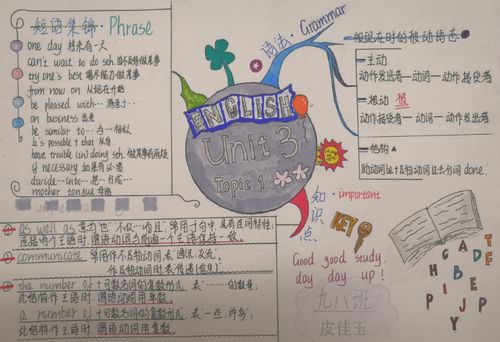 短语集锦·Phrase
one day 将来有一天
can't wait to do sth.
try one's best 尽力做某事
from now on 从现在开始
be pleased with…
on business 出差
be similar to… 与…相似
It's possible that
have trouble (in) doing sth.
if necessary 如果有必要
divide…into… 把…分成…
mother tongue 母语
语法·Grammar
一般现在时的被动语态
主动
动作发出者—动词—动作接受者
被动 被
动作接受者—动词—动作发出者
结构
助动词be+及物动词过去分词 done.
ENGLISH
Unit 3
Topic 1
知识点·important
KEY
① as well as 意为"也,不仅…而且",常用于句中,具有连词特性,
连接两个主语时,谓语动词与前面一个主语保持一致。
② communicate 常用作不及物动词,表"通讯,交流",
作及物动词时,表"传达(信息)"
③ the number of +可数名词的复数形式,表"……的数量",
此结构作主语时,谓语动词用单数。
a number of +可数名词的复数形式,表"一些,许多",
此结构作主语时,谓语动词用复数。
Good good study,
day day up!
九八班
皮佳玉
C A D T
H B E F
I G P
P J Y